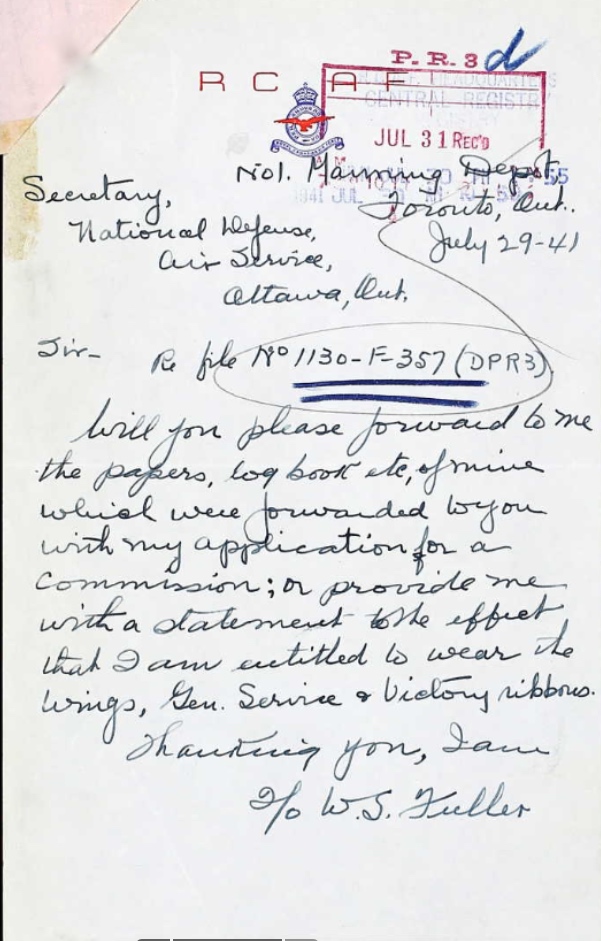 P. R. 3 d
R C A F
CENTRAL REGISTRY
JUL 31 REC'D
No1. Manning Depot
Toronto, Ont.
July 29-41
Secretary,
National Defense,
Air Service,
Ottawa, Ont.
Sir- Re file No 1130-F-357 (DPR3)
Will you please forward to me
the papers, log book etc, of mine
which were forwarded to you
with my application for a
commission; or provide me
with a statement to the effect
that I am entitled to wear the
wings, Gen. Service & Victory ribbons.
Thanking you, I am
F/o W.S. Fuller